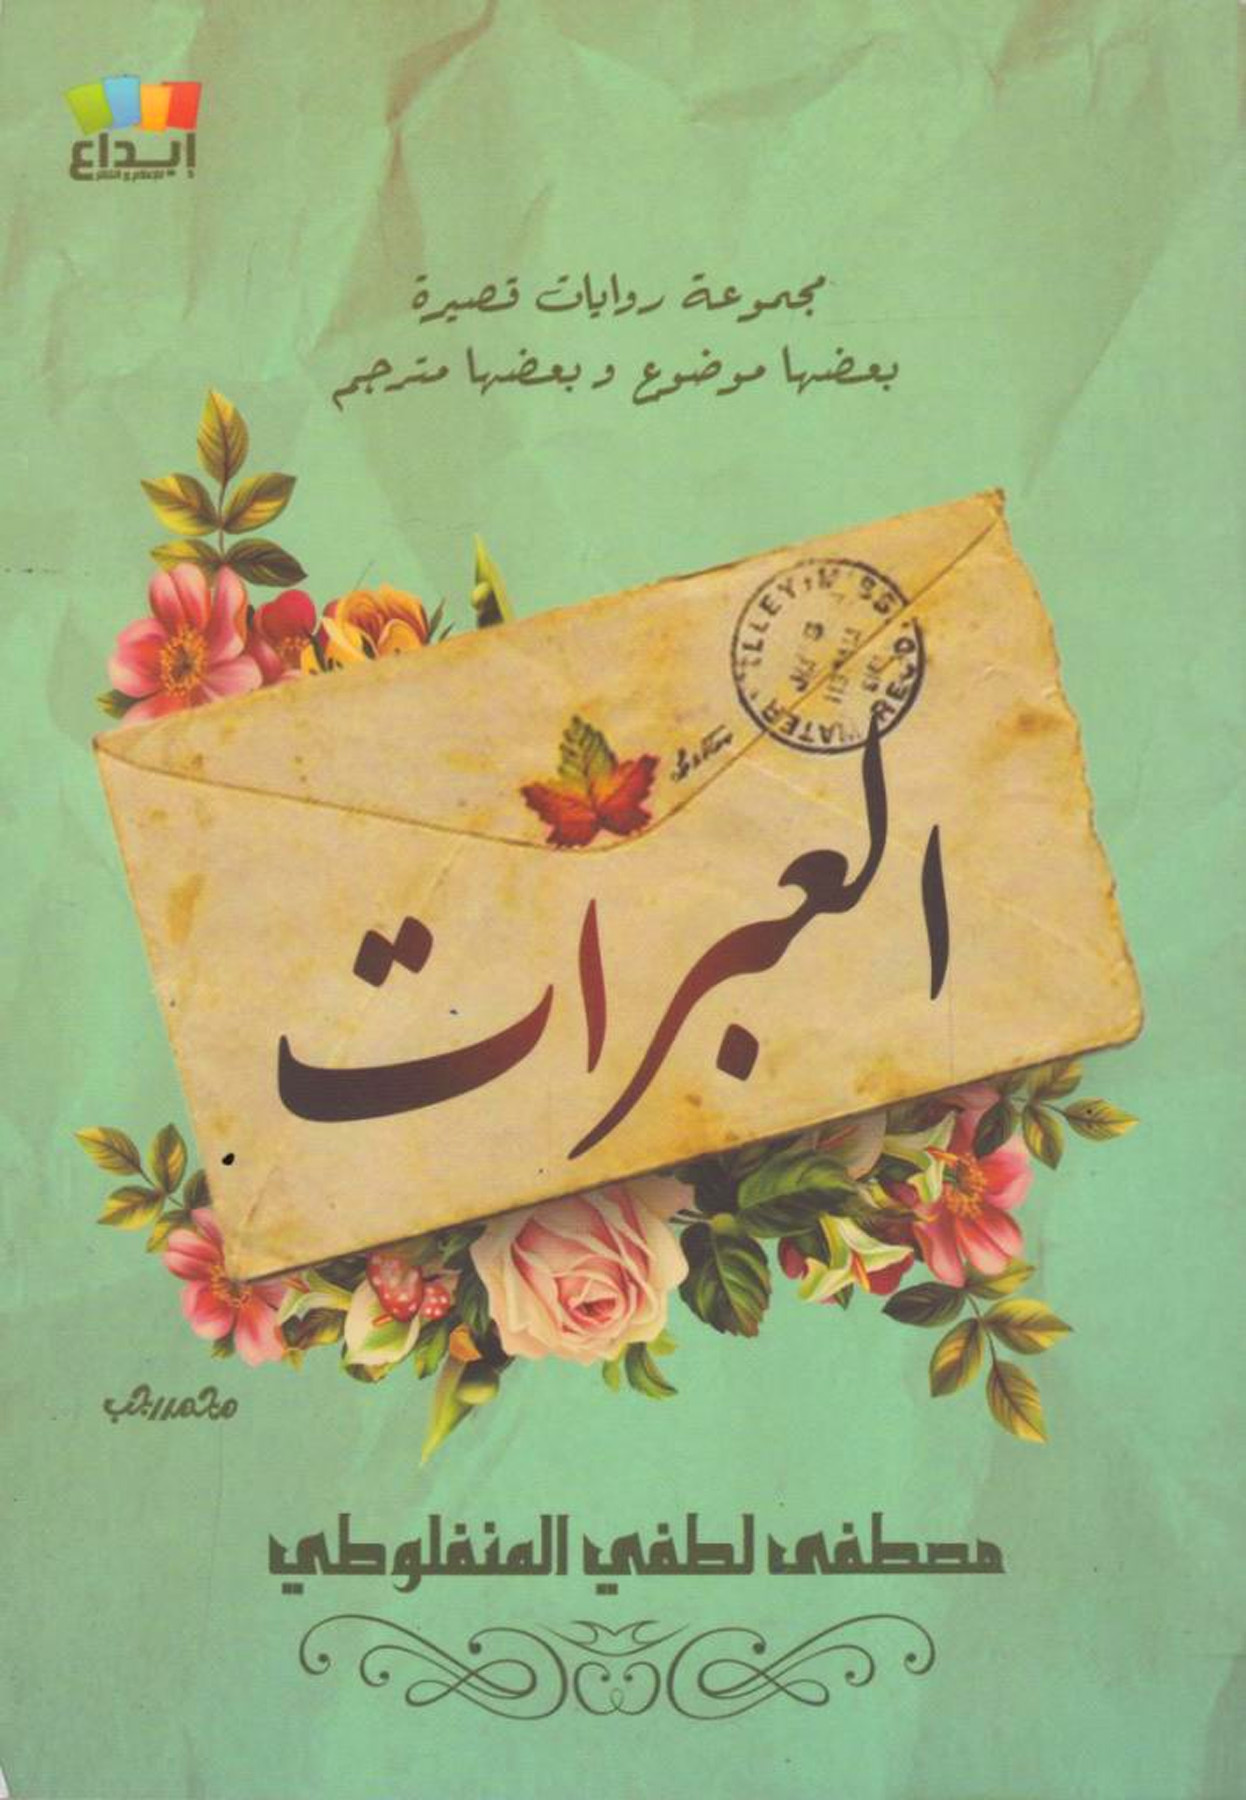 إبداع
للإعلام و النشر
مجموعة روايات قصيرة
بعضها موضوع و بعضها مترجم
العبرات
محمد رجب
مصطفى لطفي المنفلوطي